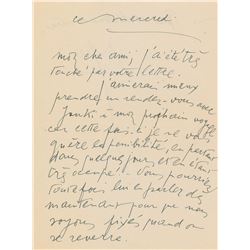 ce mercredi
mon cher ami, j'ai été très
touché par votre lettre.
J'aimerai mieux
prendre un rendez-vous avec
à mon prochain voyage
car cette fois-ci je ne vois
guère la possibilité, en partant
dans quelques jours et en étant
très occupé. Vous pourriez
toutefois lui en parler dès
maintenant pour que nous
soyons fixés quand on
se reverra.